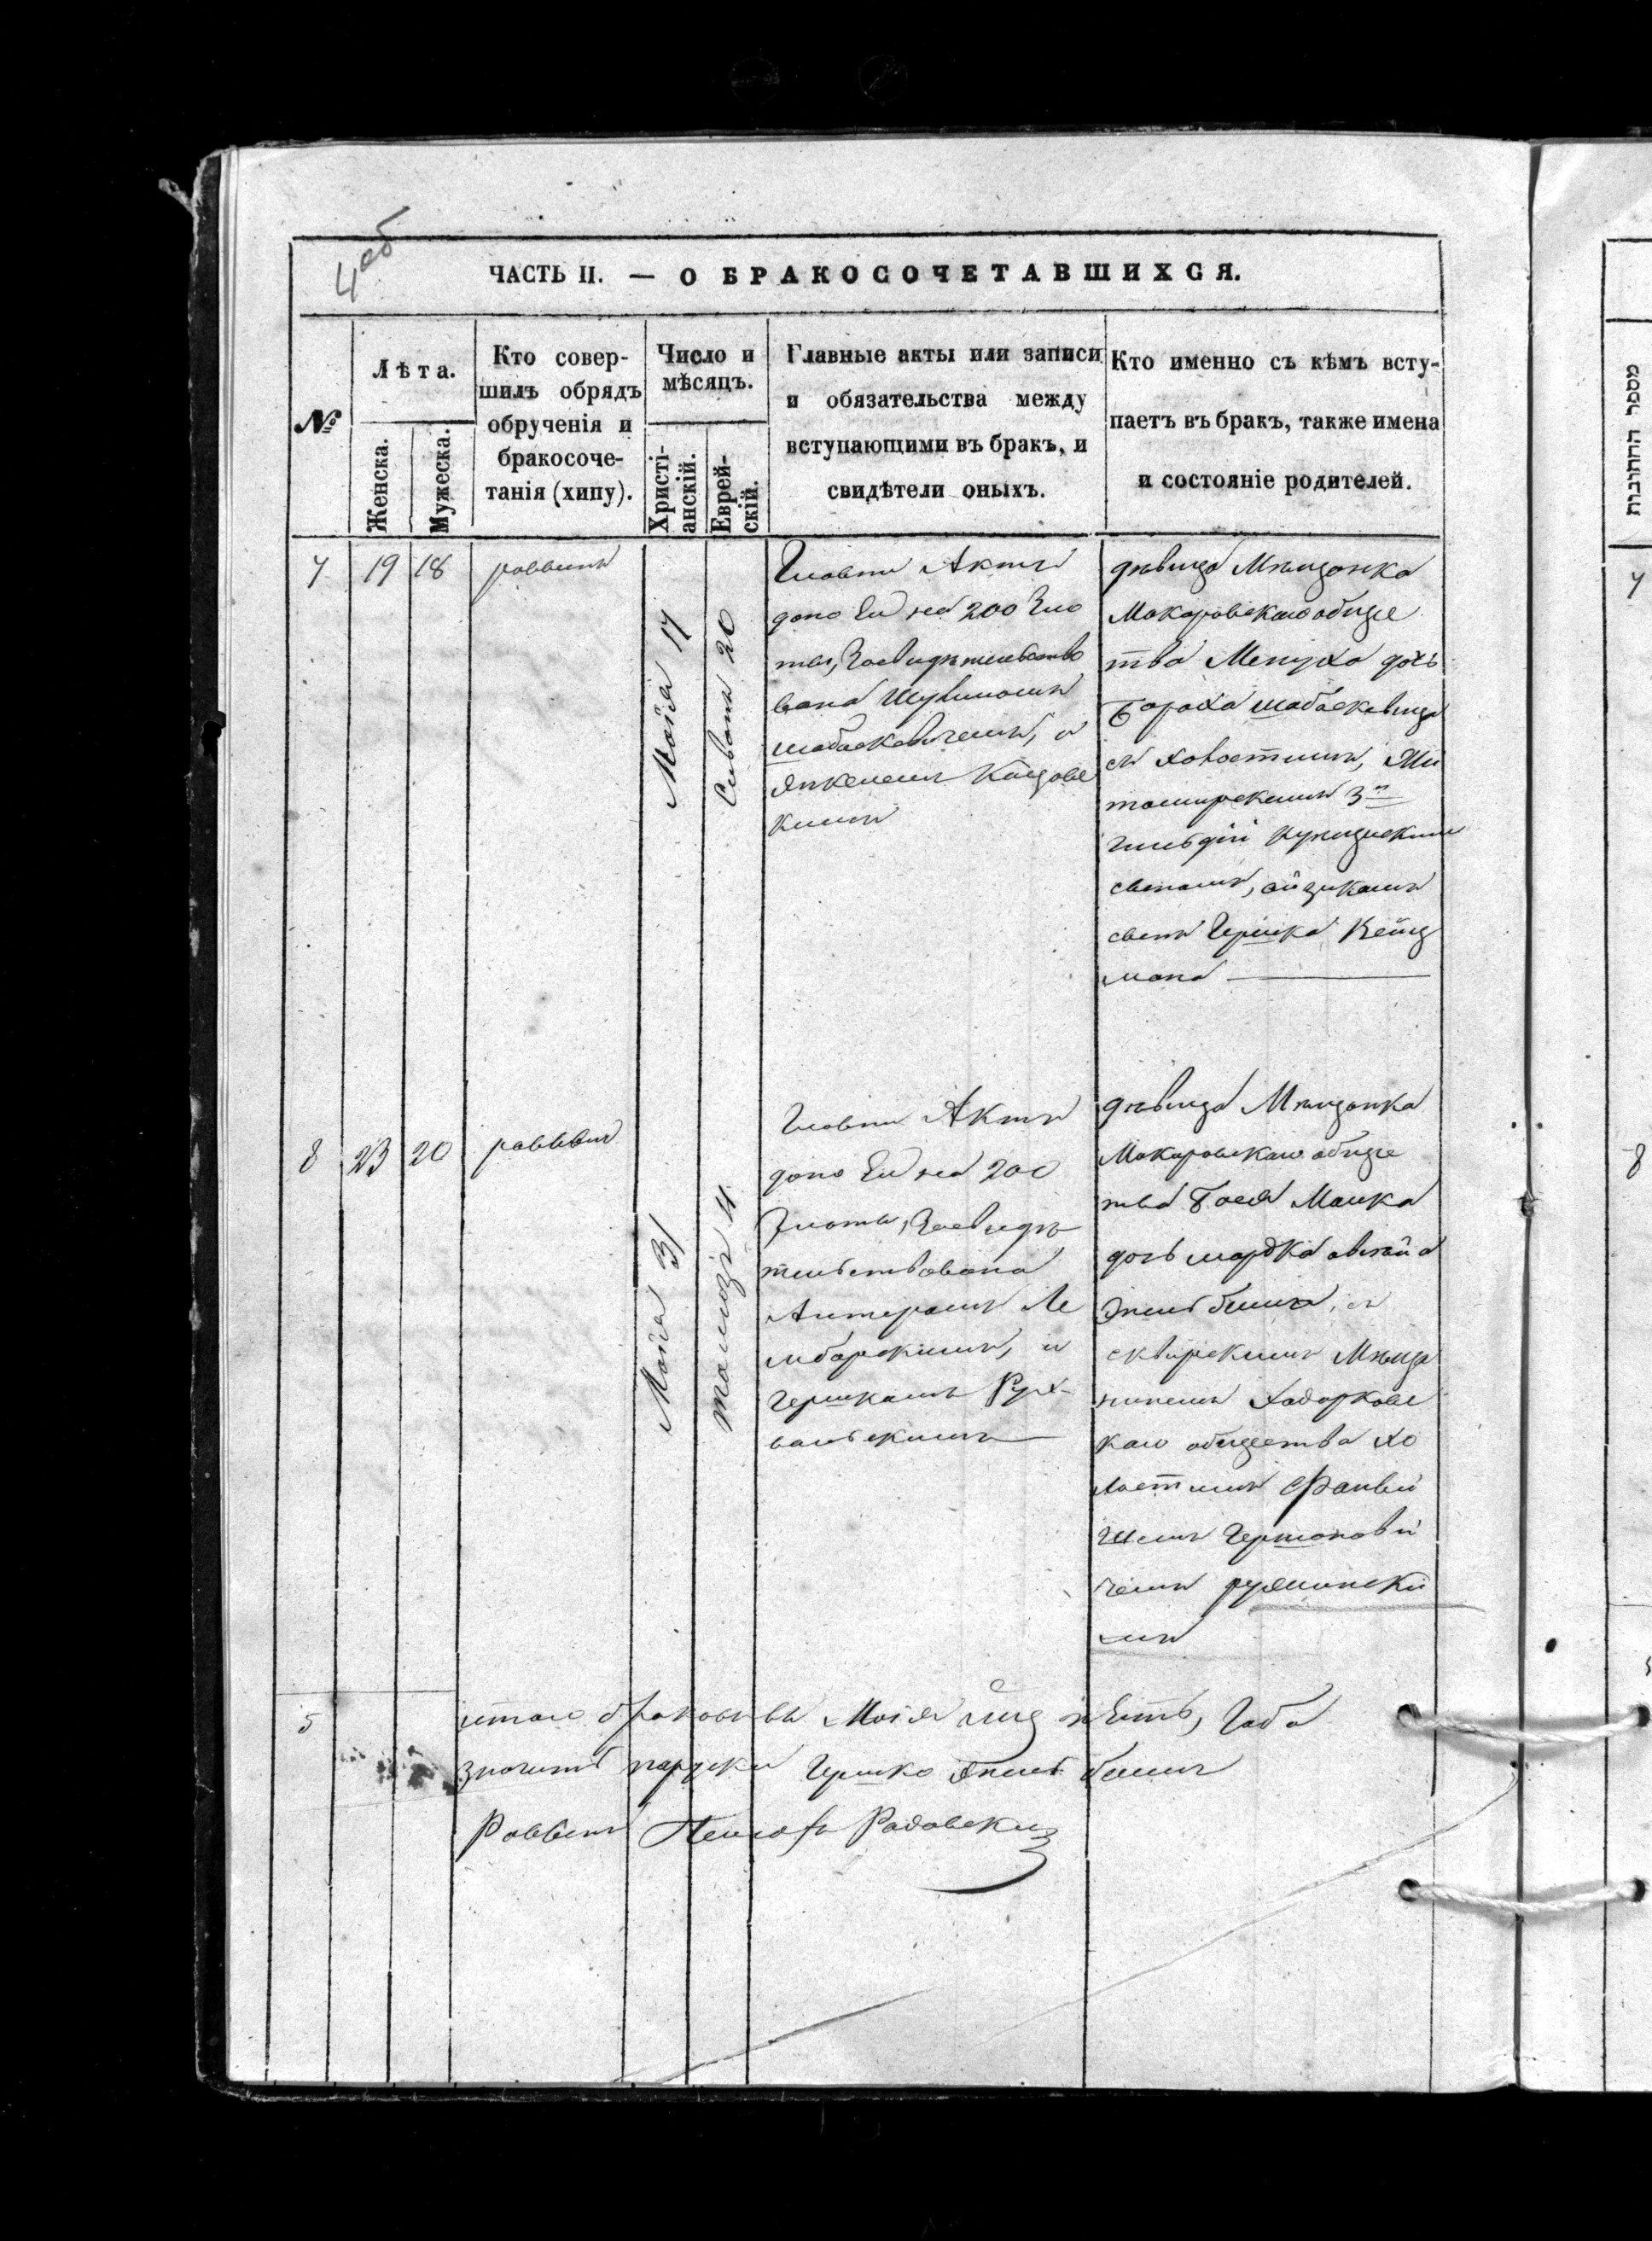 4 об
ЧАСТЬ II. — О БРАКОСОЧЕТАВШИХСЯ.
№
Лѣта.
Женска.
Мужеска.
Кто совер-
шилъ обрядъ
обрученія и
бракосоче-
танія (хипу).
Число и
мѣсяцъ.
Христі-
анскій.
Еврей-
скій.
Главные акты или записи
и обязательства между
вступающими въ бракъ, и
свидѣтели оныхъ.
Кто именно съ кѣмъ всту-
паетъ въ бракъ, также имена
и состояніе родителей.
מספר החתונות
7
19
18
раввинъ
Маія 17
Сивонъ 20
Главни Актъ
дано Ей на 200 Зло
ты, Засвидѣтельство
вана
шабаскевичемъ, и
Янкелемъ
кимъ
дѣвица Мѣщанка
Макаровскаго обще
тва Менуха дочь
Бораха шабаскевица
съ Холостымъ, Жи
томирскимъ 3й
гильдіи Купецкимъ
сыномъ, айзикомъ
сынъ Гершка
мана
7
8
23
20
раввинъ
Маія 31
тамозъ 4
Главни Актъ
дано Ей на 200
Злоты, Засвидѣ
тельствована
Альтеромъ Ле
мбарскимъ, и
Гершкомъ Рух-
вальскимъ
дѣвица Мѣщанка
Макаровскаго обще
тва Бася Малка
дочь мордка
съ
сквирскимъ Мѣща
ниномъ Ходорковс
каго общества хо
лостымъ Файви
шемъ Гершонови
чемъ
мъ
8
5
итого браковъ въ Маія мцъ пять, Габа
значитъ Гершко
Раввинъ Радовски